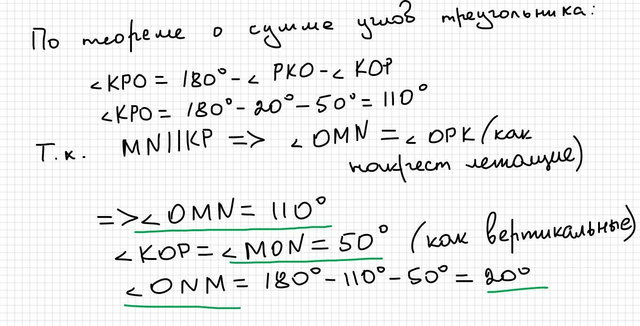 По теореме о сумме углов треугольника:
∠KPO = 180° - ∠PKO - ∠KOP
∠KPO = 180° - 20° - 50° = 110°
Т.к. MN||KP => ∠OMN = ∠OPK (как
накрест летащие)
=> ∠OMN = 110°
∠KOP = ∠MON = 50° (как вертикальные)
∠ONM = 180° - 110° - 50° = 20°